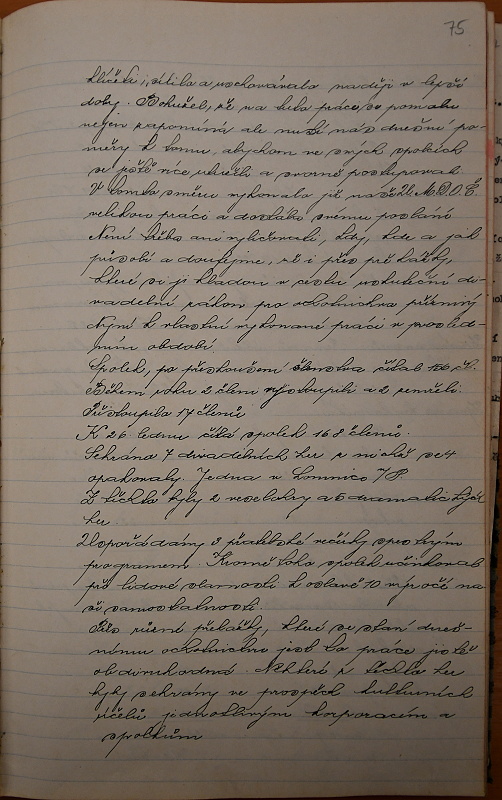 75
klíčila, sílila a uschovávala naději v lepší
doby. Bohužel, že na tuto práci se pomalu
nejen zapomíná ale nutí nás dnešní po-
měry k tomu, abychom ve svých spolcích
se ještě více utužili a svorně postupovali.
V tomto směru vykonala již naše ÚMDOČ
velikou práci a dostála svému poslání
Není třeba ani vyličovati, kdy, kde a jak
působí a doufejme, že i přes překážky,
které se jí kladou v cestu uskuteční di-
vadelní zákon pro ochotnictvo příznivý
Nyní k vlastní vykonané práci v prošlém
období.
Spolek, po přezkoušení členstva čítal 155 čl.
Během roku 2 členi vystoupili a 2 zemřeli.
Přistoupilo 17 členů
K 26 lednu čítá spolek 168 členů.
Sehráno 7 divadelních her z nichž se 4
opakovaly. Jedna v Lomnici n/P.
Z těchto byly 2 veselohry a 5 dramatických
her
Uspořádány 3 přátelské večírky s pestrým
programem. Kromě toho spolek účinkoval
při lidové slavnosti k oslavě 10 výročí na-
ší samostatnosti.
Přes různé překážky, které se staví dneš-
nímu ochotnictvu jest ta práce jistě
obdivuhodná. Některé z těchto her
byly sehrány ve prospěch kulturních
účelů jednotlivým korporacím a
spolkům